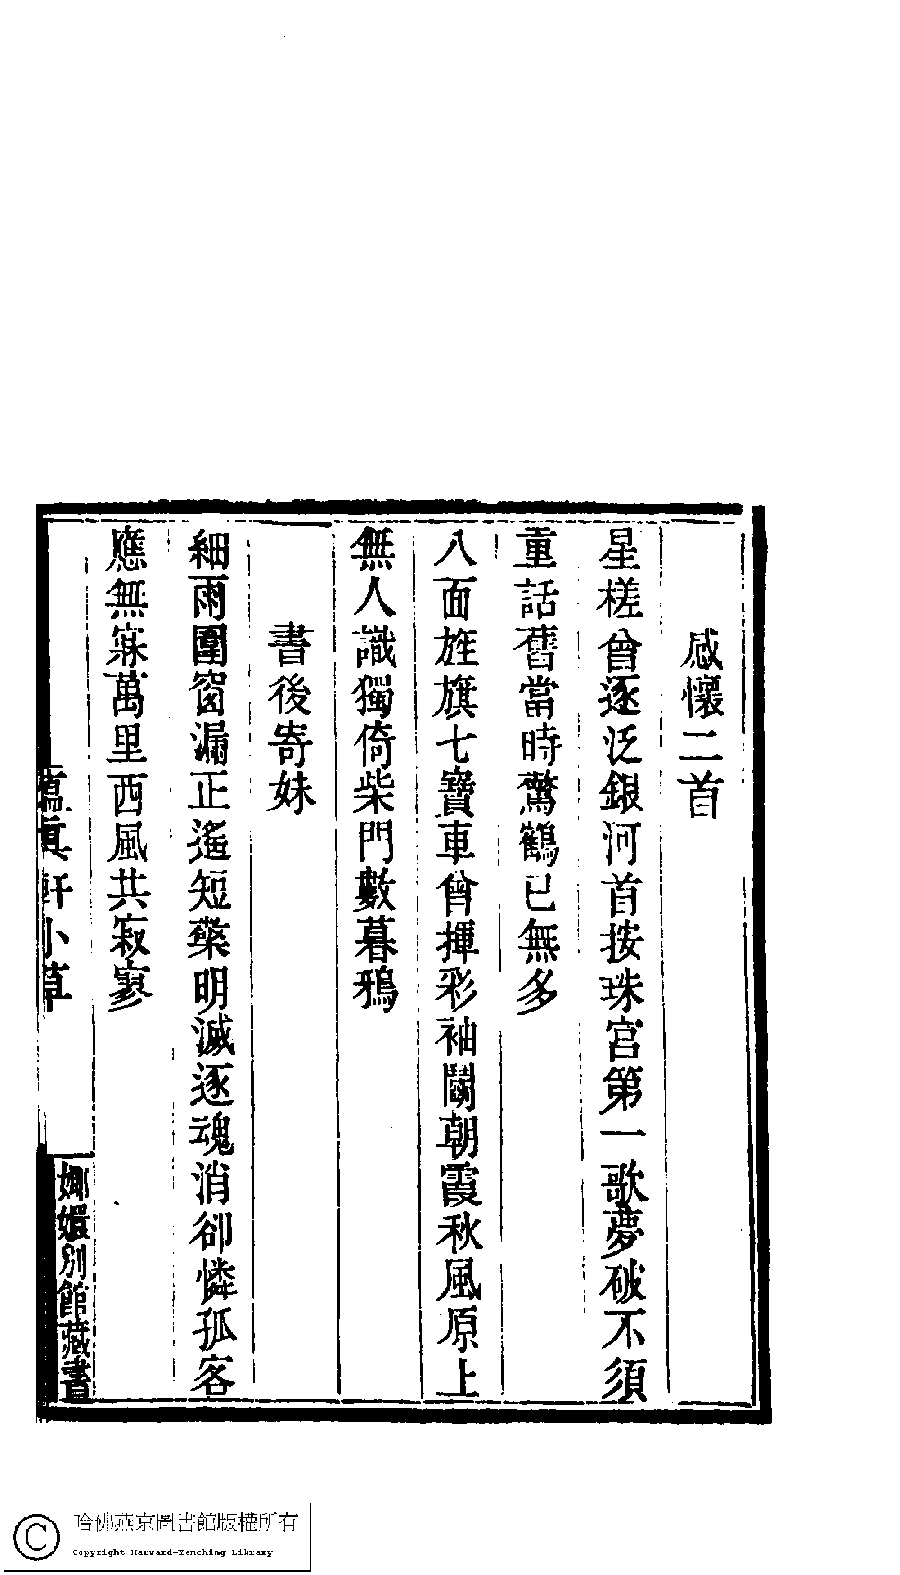 感懷二首
星槎曾逐泛銀河首按珠宮第一歌夢破不須
重話舊當時驚鶴已無多
八面旌旗七寶車曾揮彩袖鬭朝霞秋風原上
無人識獨倚柴門數暮鴉
書後寄妹
細雨圍窗漏正遙短檠明滅逐魂消卻憐孤客
應無寐萬里西風共寂寥
蘊真軒小草
嫏嬛別館藏書
哈佛燕京圖書館版權所有
Copyright Harvard-Yenching Library